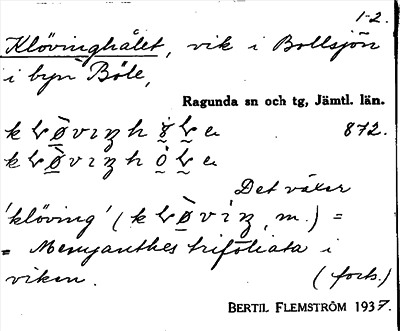 1-2.
Klövinghålet, vik i Bollsjön
i byn Böle,
Ragunda sn och tg, Jämtl. län.
872.
Det växer
'klöving' ( , m.) =
= Menyanthes trifoliata i
viken. (forts.)
BERTIL FLEMSTRÖM 1937.